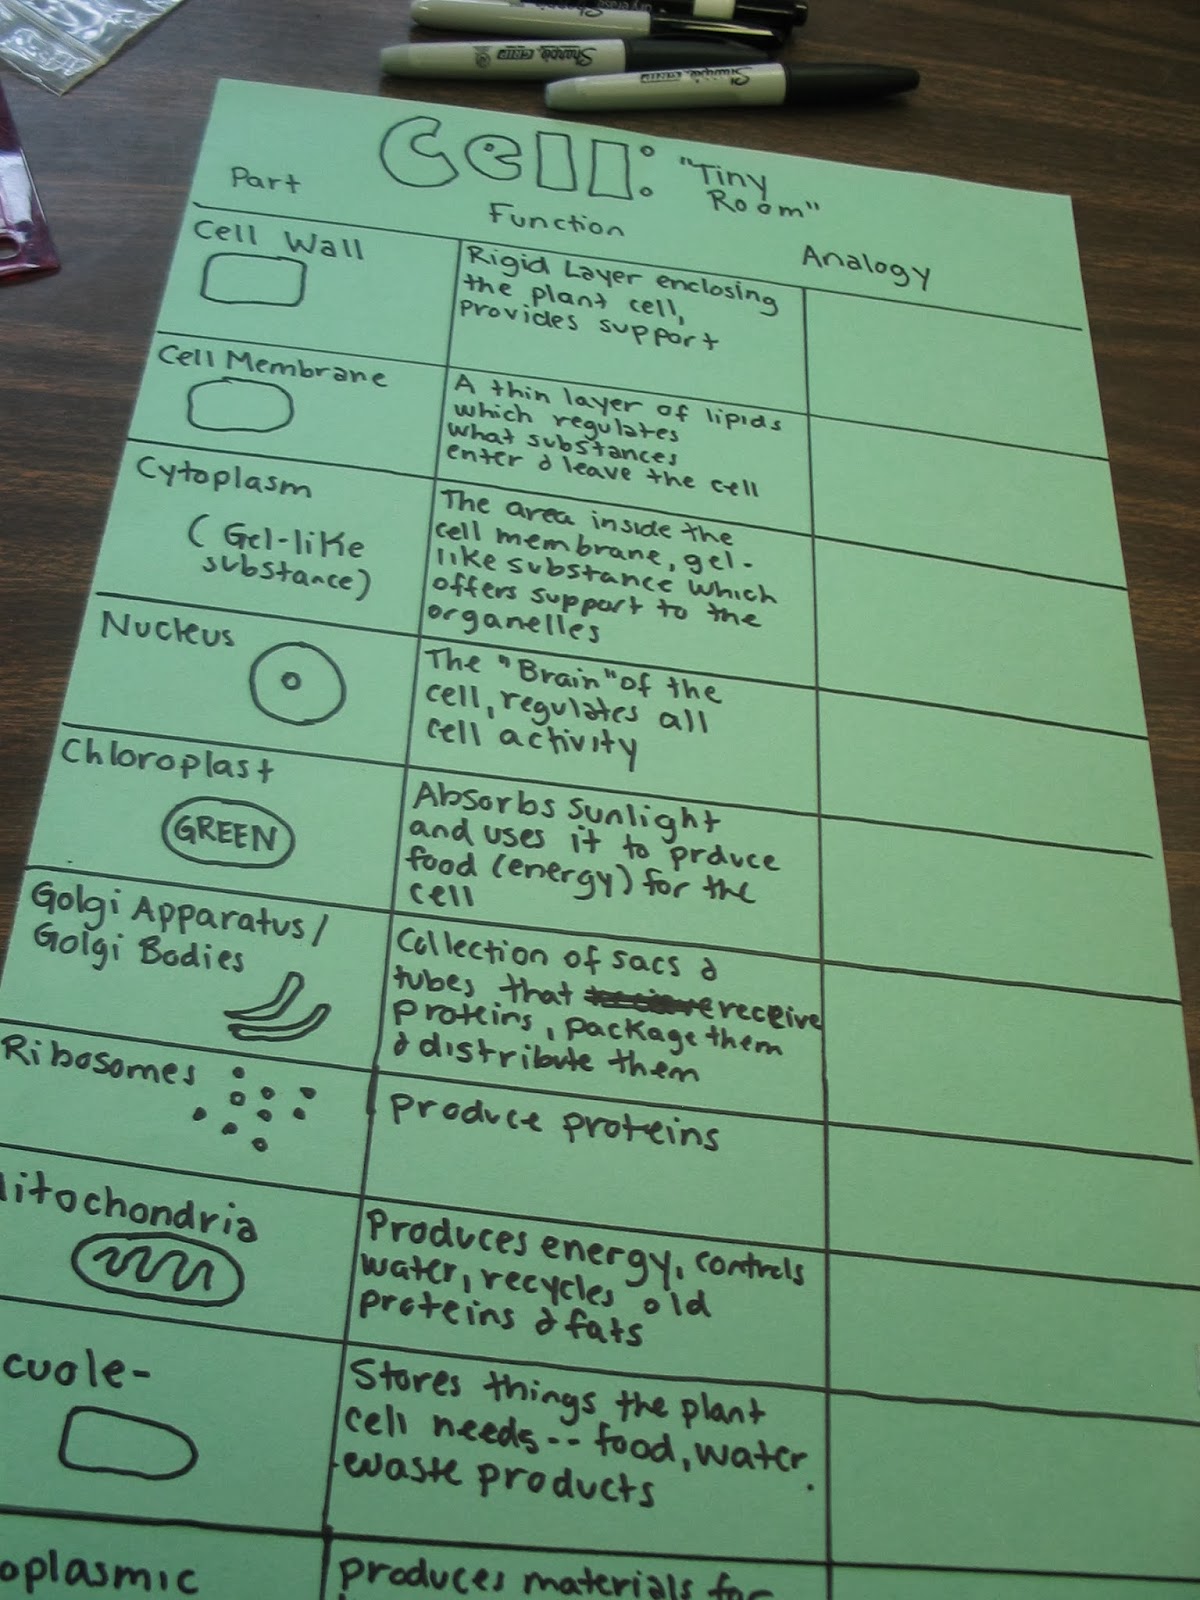 Sharpie
Sharpie
Cell: "Tiny
Room"
Part
Function
Analogy
Cell Wall
Rigid Layer enclosing
the plant cell,
provides support
Cell Membrane
A thin layer of lipids
which regulates
what substances
enter & leave the cell
Cytoplasm
(Gel-like
substance)
The area inside the
cell membrane, gel-
like substance which
offers support to the
organelles
Nucleus
The "Brain" of the
cell, regulates all
cell activity
Chloroplast
GREEN
Absorbs sunlight
and uses it to prduce
food (energy) for the
cell
Golgi Apparatus/
Golgi Bodies
Collection of sacs &
tubes that receive
proteins, package them
& distribute them
Ribosomes
produce proteins
itochondria
Produces energy, controls
water, recycles old
proteins & fats
cuole-
Stores things the plant
cell needs-- food, water
waste products
oplasmic
produces materials for